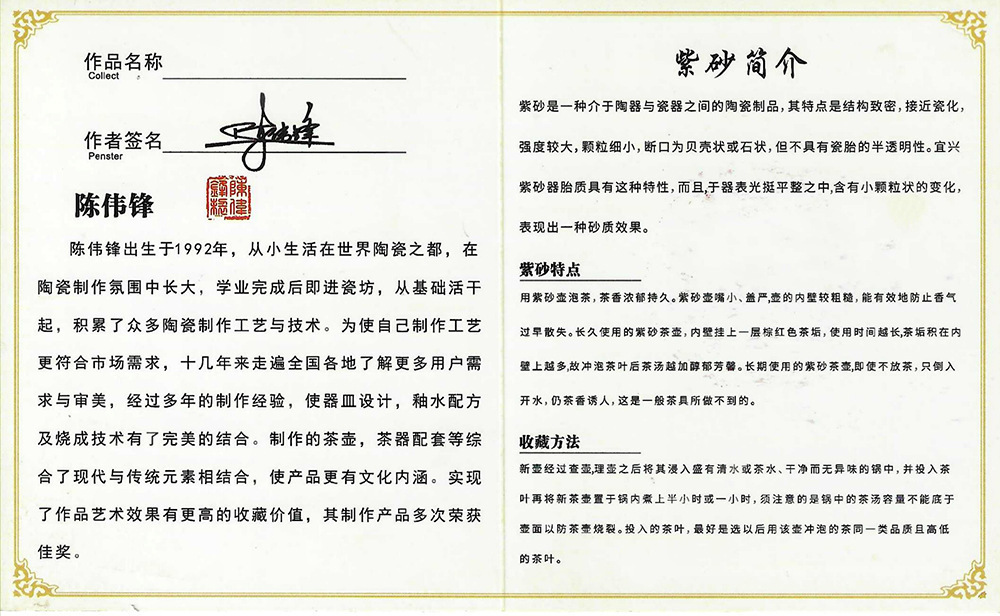 作品名称
Collect
作者签名
Penster
陈伟锋
陈伟锋出生于1992年，从小生活在世界陶瓷之都，在
陶瓷制作氛围中长大，学业完成后即进瓷坊，从基础活干
起，积累了众多陶瓷制作工艺与技术。为使自己制作工艺
更符合市场需求，十几年来走遍全国各地了解更多用户需
求与审美，经过多年的制作经验，使器皿设计，釉水配方
及烧成技术有了完美的结合。制作的茶壶，茶器配套等综
合了现代与传统元素相结合，使产品更有文化内涵。实现
了作品艺术效果有更高的收藏价值，其制作产品多次荣获
佳奖。
紫砂简介
紫砂是一种介于陶器与瓷器之间的陶瓷制品，其特点是结构致密，接近瓷化，
强度较大，颗粒细小，断口为贝壳状或石状，但不具有瓷胎的半透明性。宜兴
紫砂器胎质具有这种特性，而且,于器表光挺平整之中,含有小颗粒状的变化，
表现出一种砂质效果。
紫砂特点
用紫砂壶泡茶，茶香浓郁持久。紫砂壶嘴小、盖严,壶的内壁较粗糙，能有效地防止香气
过早散失。长久使用的紫砂茶壶，内壁挂上一层棕红色茶垢，使用时间越长,茶垢积在内
壁上越多,故冲泡茶叶后茶汤越加醇郁芳馨。长期使用的紫砂茶壶,即使不放茶，只倒入
开水，仍茶香诱人，这是一般茶具所做不到的。
收藏方法
新壶经过查壶,理壶之后将其浸入盛有清水或茶水、干净而无异味的锅中，并投入茶
叶再将新茶壶置于锅内煮上半小时或一小时，须注意的是锅中的茶汤容量不能底于
壶面以防茶壶烧裂。投入的茶叶，最好是选以后用该壶冲泡的茶同一类品质且高低
的茶叶。